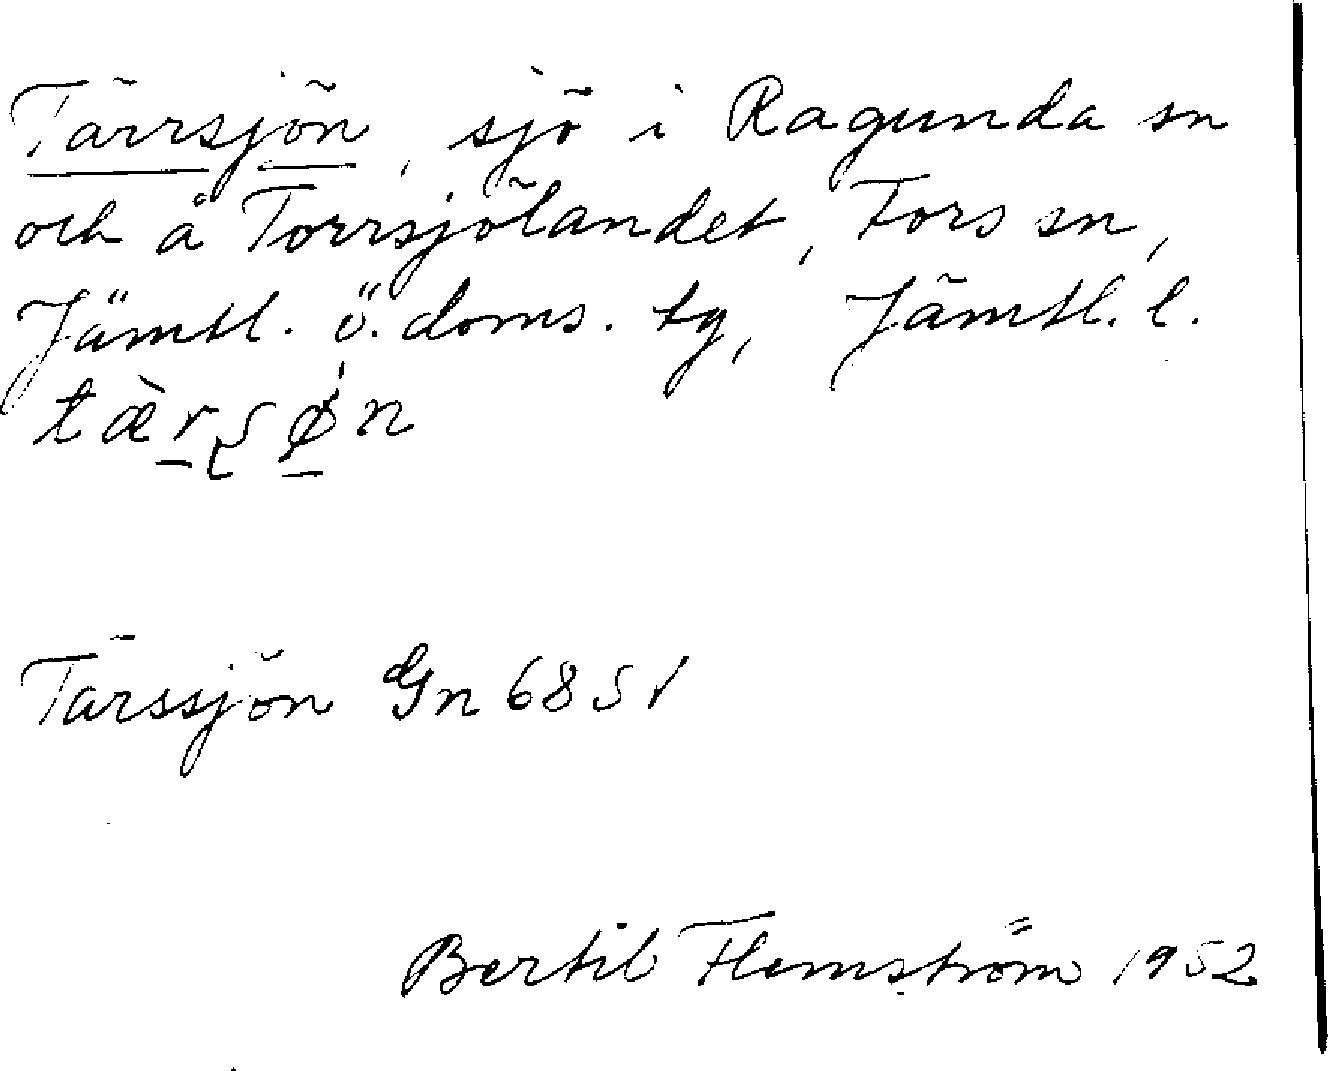 Tärrsjön, sjö i Ragunda sn
och å Torrsjölandet, Fors sn,
Jämtl. ö. doms. tg, Jämtl. l.
tæ̀rʂøn
Tärssjön Gn 68 SV
Bertil Flemström 1952